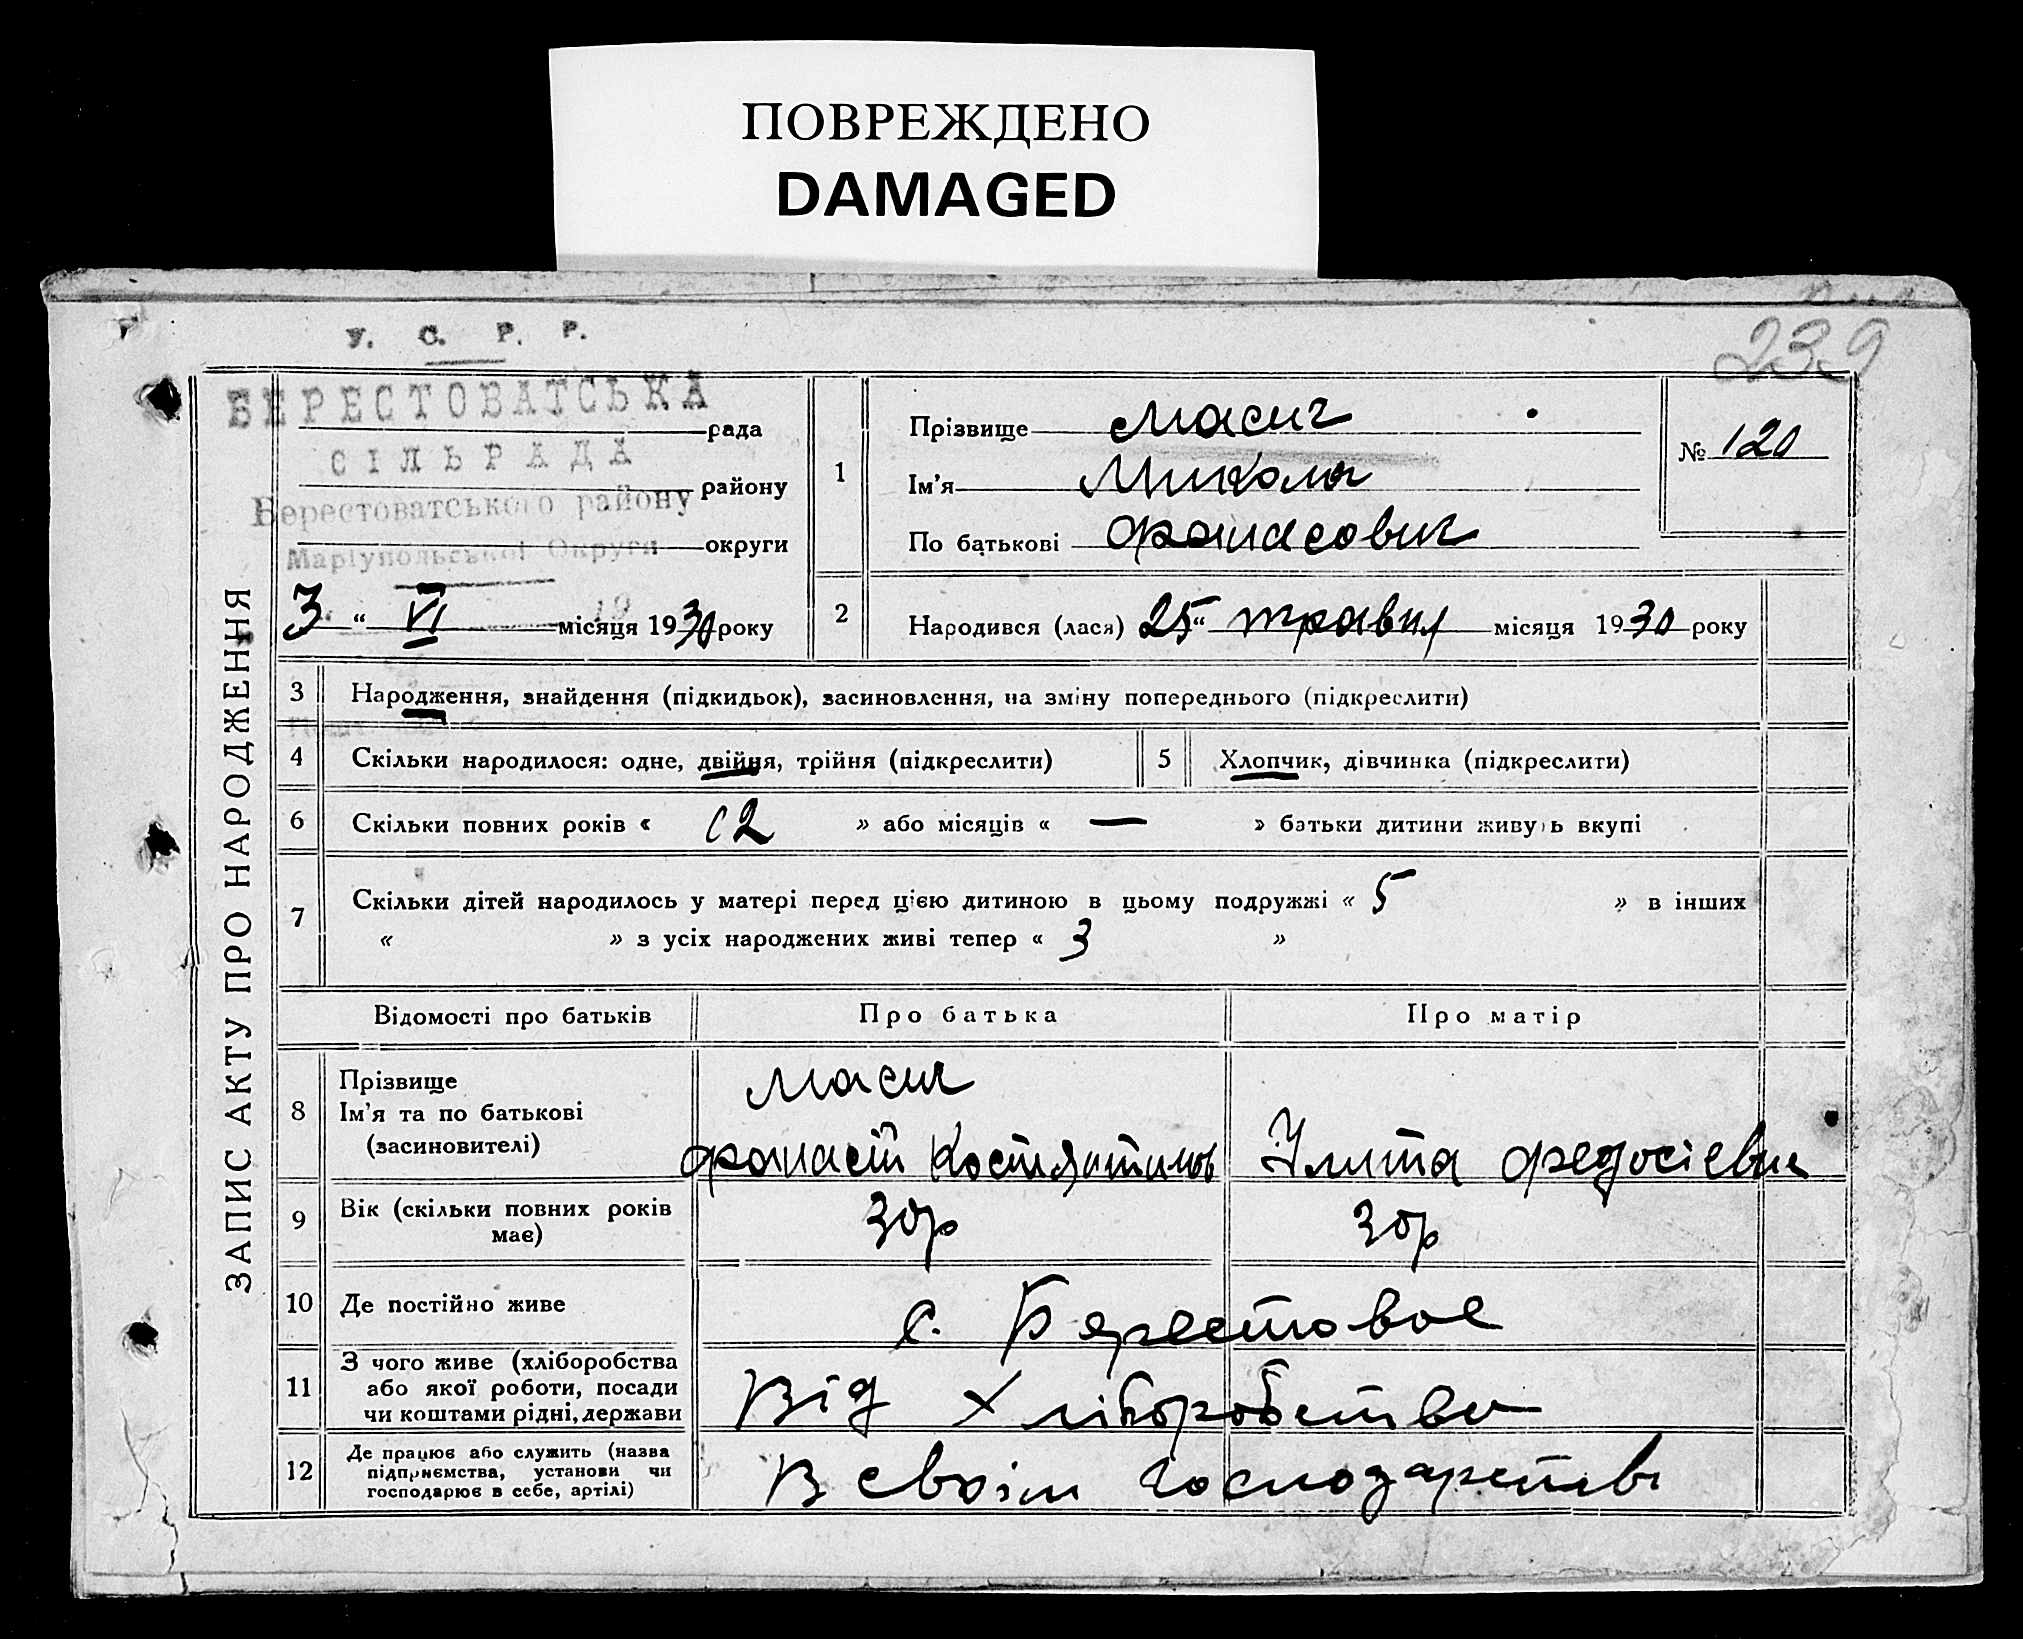 ПОВРЕЖДЕНО
DAMAGED
239
У. С. Р. Р.
БЕРЕСТОВАТСЬКА
рада
СІЛЬРАДА
району
Берестоватського району
округи
Маріупольської Округи
3 " VI місяця 1930 року
1
Прізвище Масич
Ім'я Микола
По батькові Фанасович
№ 120
2
Народився (лася) 25 " травня місяця 1930 року
ЗАПИС АКТУ ПРО НАРОДЖЕННЯ
3 Народження, знайдення (підкидьок), засиновлення, на зміну попереднього (підкреслити)
4 Скільки народилося: одне, двійня, трійня (підкреслити)
5 Хлопчик, дівчинка (підкреслити)
6 Скільки повних років « 12 » або місяців « — » батьки дитини живуть вкупі
7 Скільки дітей народилось у матері перед цією дитиною в цьому подружжі « 5 » в інших
« » з усіх народжених живі тепер « 3 »
Відомості про батьків Про батька Про матір
8 Прізвище
Ім'я та по батькові
(засиновителі)
Масич
Фанасій Костянтинов
Улита Федосієвна
9 Вік (скільки повних років
має)
30р 30р
10 Де постійно живе с. Берестовое
11 З чого живе (хліборобства
або якої роботи, посади
чи коштами рідні, держави
Від Хліборобства
12 Де працює або служить (назва
підприємства, установи чи
господарює в себе, артілі)
В своїм господарстві